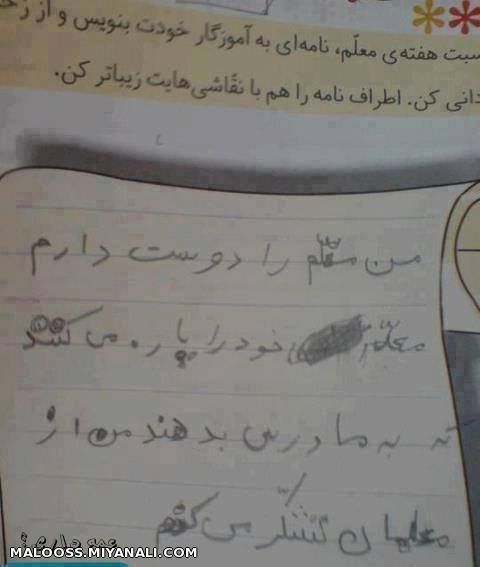 سبت هفته‌ی معلّم، نامه‌ای به آموزگار خودت بنویس و از زح
دانی کن. اطراف نامه را هم با نقّاشی‌هایت زیباتر کن.
من معلّم را دوست دارم
معلّم خود را پاره می کنند
که به ما درس بدهند من از
معلمان تشکّر می کنم
MALOOSS.MIYANALI.COM